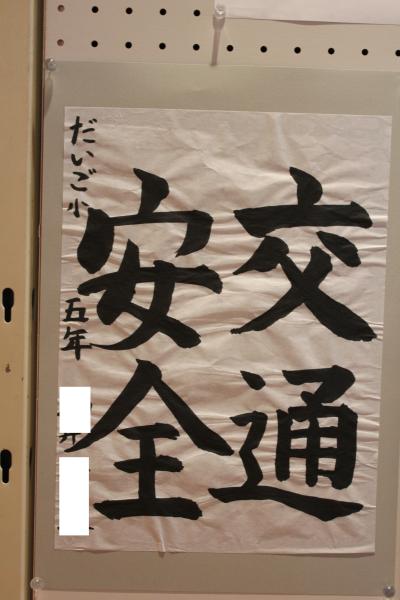 交通
安全
だいご小 五年